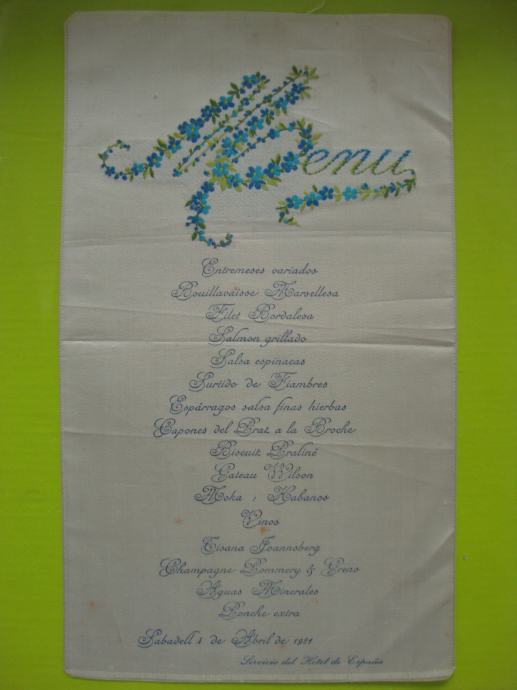 Menu
Entremeses variados
Bouillavaisse Marsellesa
Filet Bordalesa
Salmon grillado
Salsa espinacas
Surtido de Fiambres
Espárragos salsa finas hierbas
Capones del Prat a la Broche
Biscuit Praliné
Gateau Wilson
Moka i Habanos
Vinos
Tisana Joannsberg
Champagne Pommery & Greno
Aguas Minerales
Ponche extra
Sabadell 4 de Abril de 1921
Servicio del Hotel de España